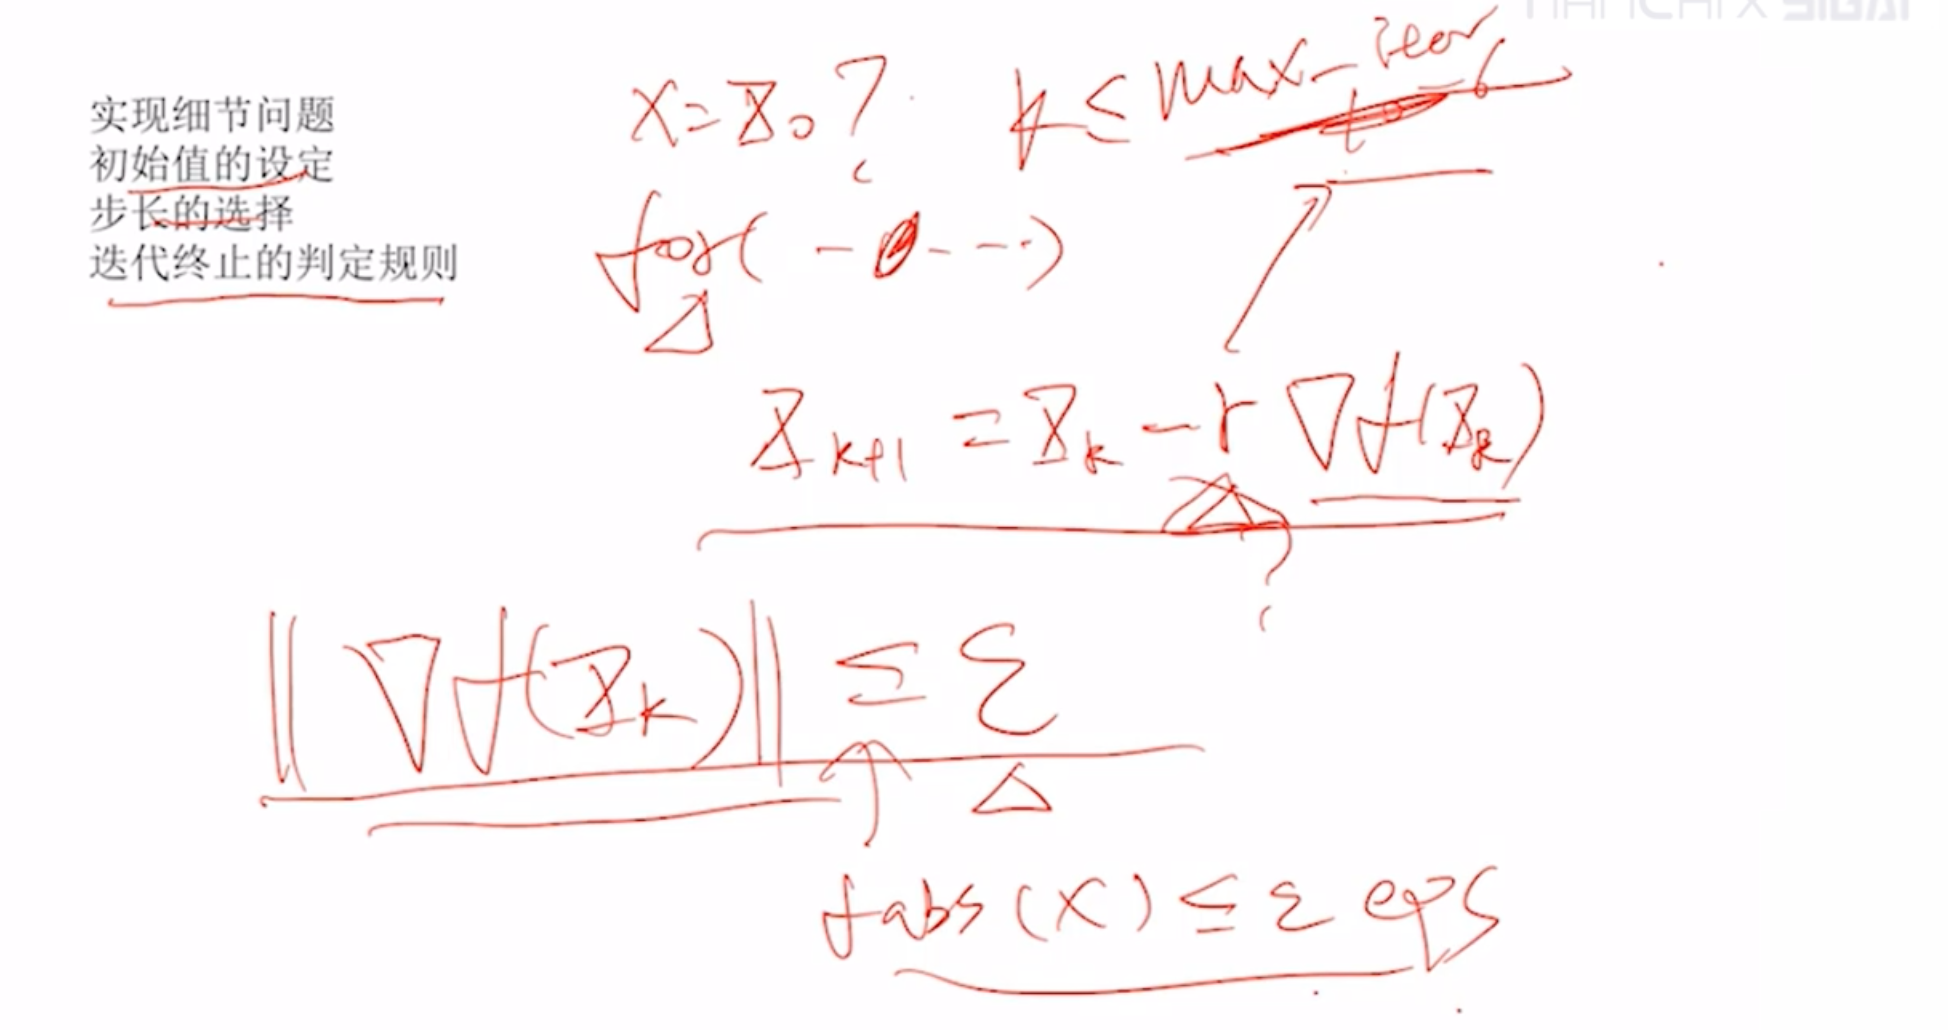 实现细节问题
初始值的设定
步长的选择
迭代终止的判定规则
x = x₀ ?
k ≤ max_iter
for( - - - ...)
x k+1 = x k - r ∇f(x k)
|| ∇f(x k) || ≤ ε
fabs(x) ≤ ε eps